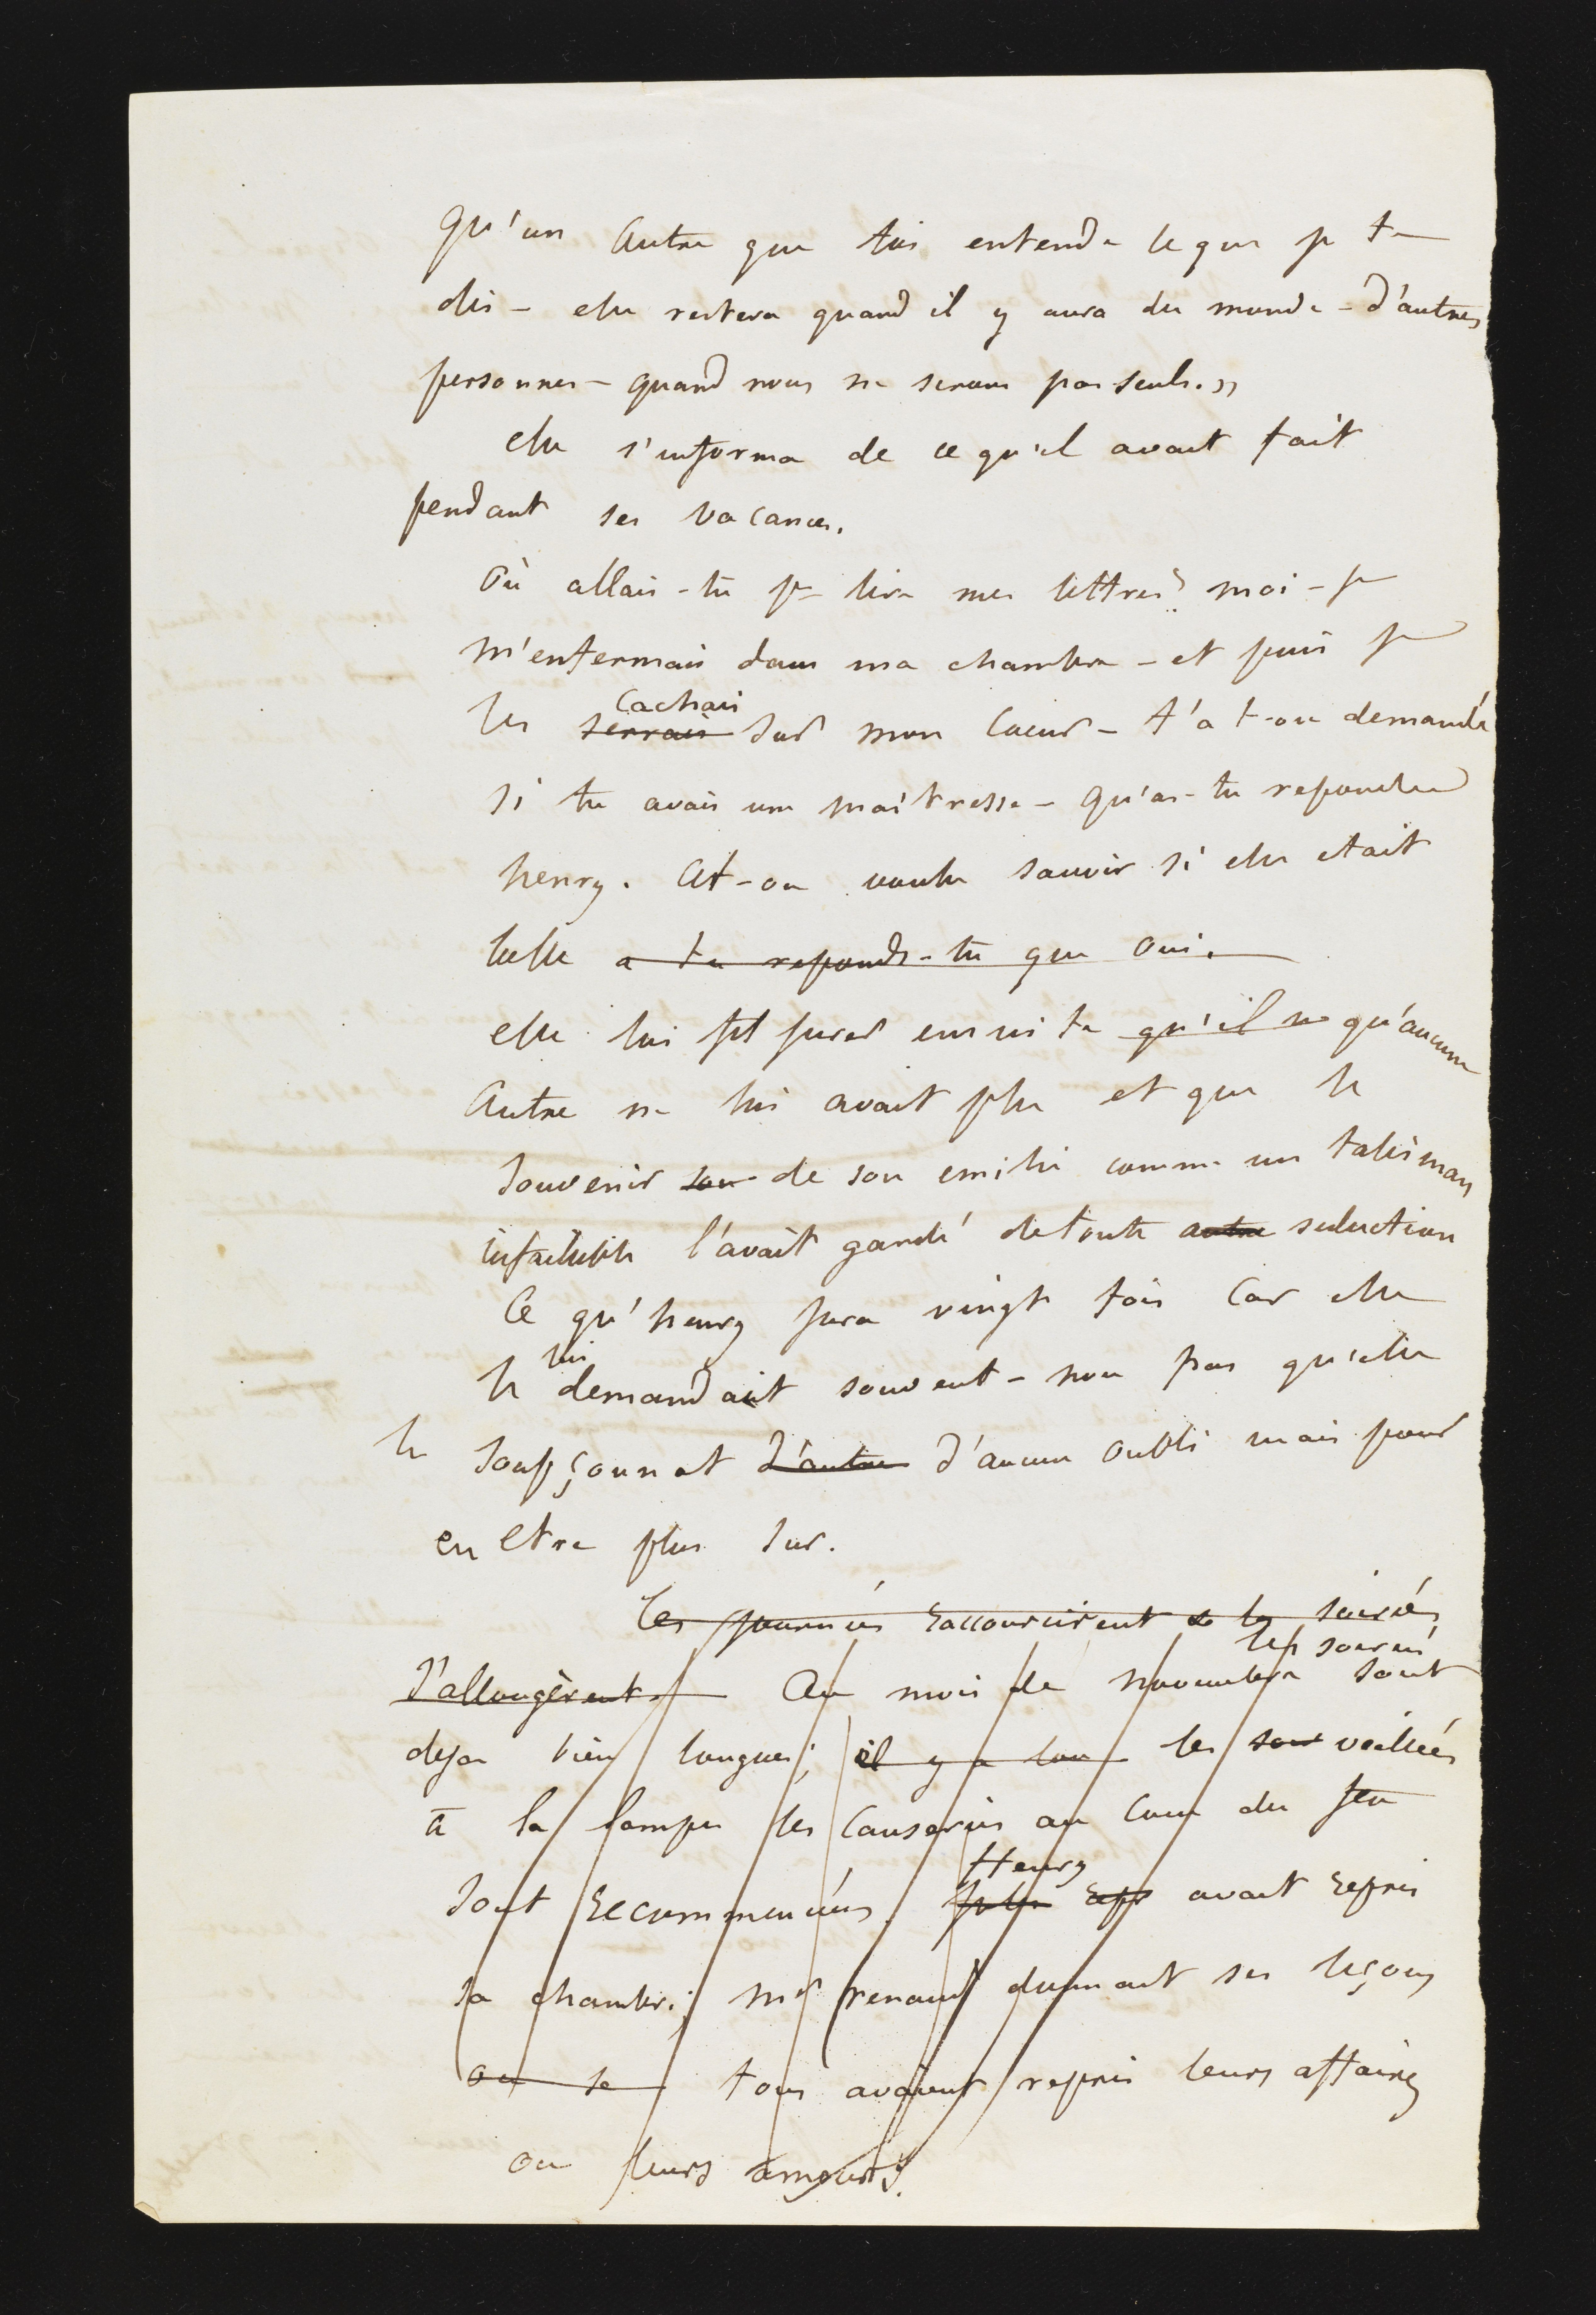 qu'un autre que toi entende ce que je te
dis – elle restera quand il y aura du monde – d'autres
personnes – quand nous ne serons pas seuls. »
elle s'informa de ce qu'il avait fait
pendant ses vacances.
Où allais-tu pr lire mes lettres? moi – je
m'enfermais dans ma chambre – et puis je
cachais
les serrais sur mon coeur – t'a t-on demandé
si tu avais une maîtresse – qu'as-tu repondu
henry. at-on voulu savoir si elle etait
belle a te reponds-tu que oui.
elle lui fit jurer ensuite qu'il ne qu'aucune
autre ne lui avait plu et que le
souvenir son de son emilie comme un talisman
infaillible l'avait gardé de toute autre seduction
Ce qu'henry jura vingt fois car elle
lui
le demandait souvent – non pas qu'elle
le soupçonnat d'autre d'aucun oubli mais pour
en etre plus sur.
Les journées raccourcirent & les soirées
les soireés
s'allongèrent. Au mois de novembre sont
deja bien longues; il y a lon les soir veilleés
à la lampe les causeries au coin du feu
Henry
sont recommencées. Jules rep avait repris
sa chambre; mr renaud donnait ses leçons
on se tous avaient repris leurs affaires
ou leurs amours.